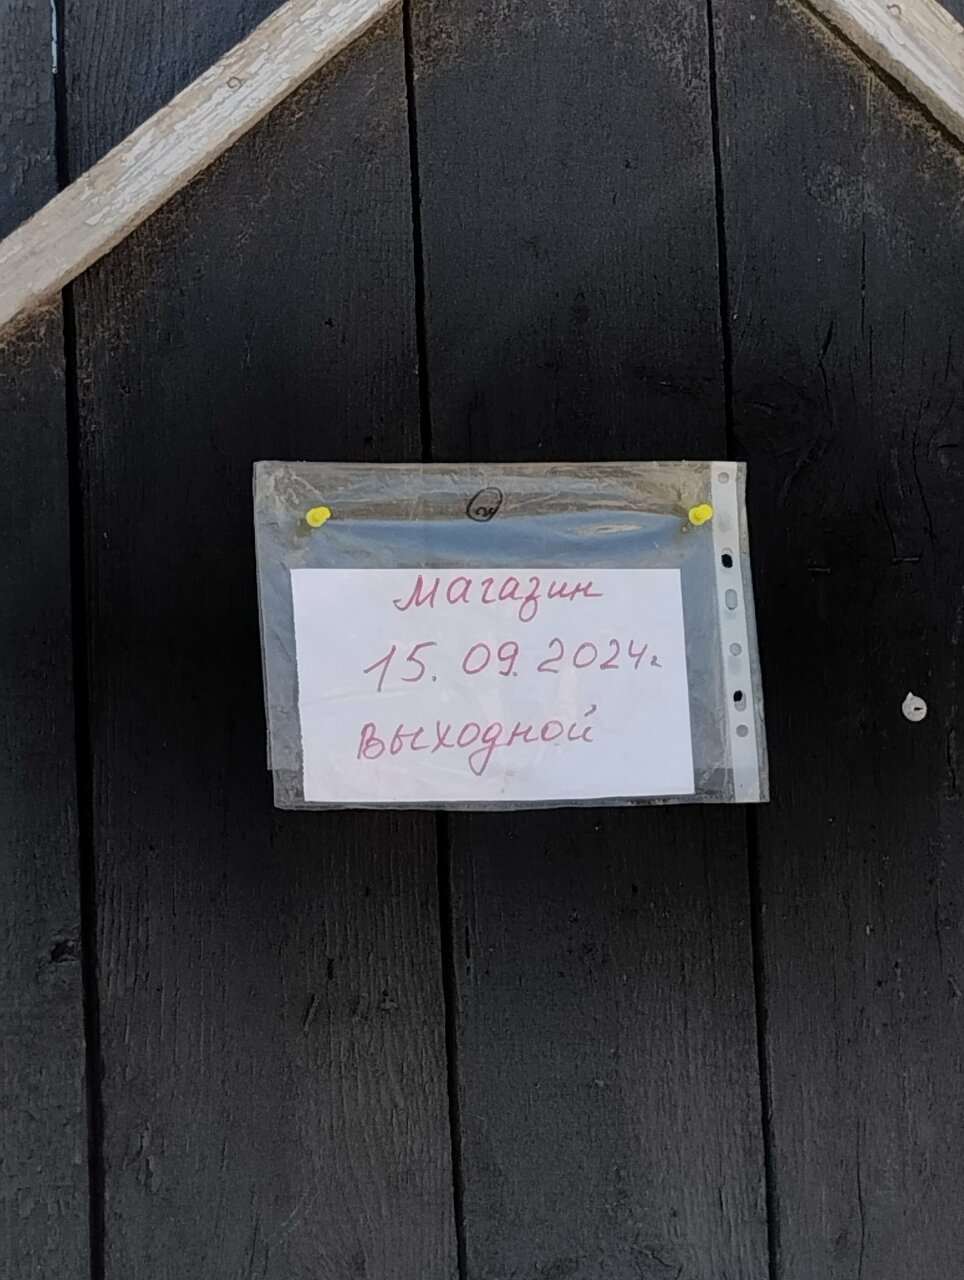 Магазин
15.09.2024г
выходной